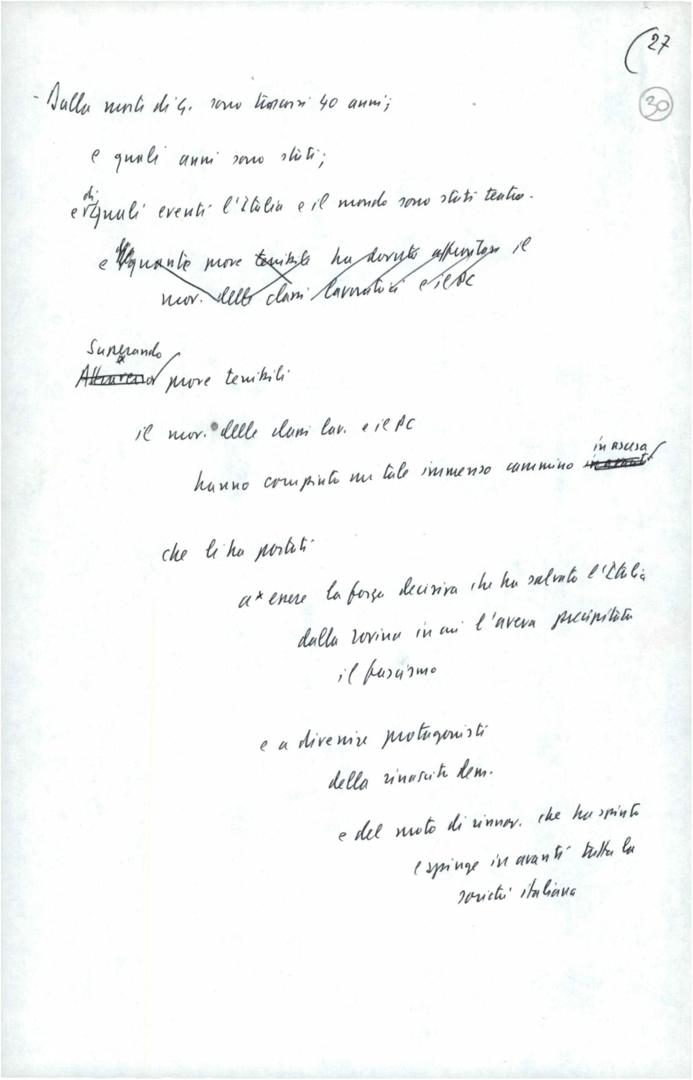 (27
30
- Dalla morte di G. sono trascorsi 40 anni;
e quali anni sono stati;
di
e quali eventi l'Italia e il mondo sono stati teatro.
e quante prove terribili ha dovuto affrontare il
mov. delle classi lavoratrici e il PC
Superando
Attraverso prove terribili
il mov. delle classi lav. e il PC
in ascesa
hanno compiuto un tale immenso cammino in avanti
che li ha portati
a essere la forza decisiva che ha salvato l'Italia
dalla rovina in cui l'aveva precipitata
il fascismo
e a divenire protagonisti
della rinascita dem.
e del moto di rinnov. che ha spinto
e spinge in avanti tutta la
società italiana